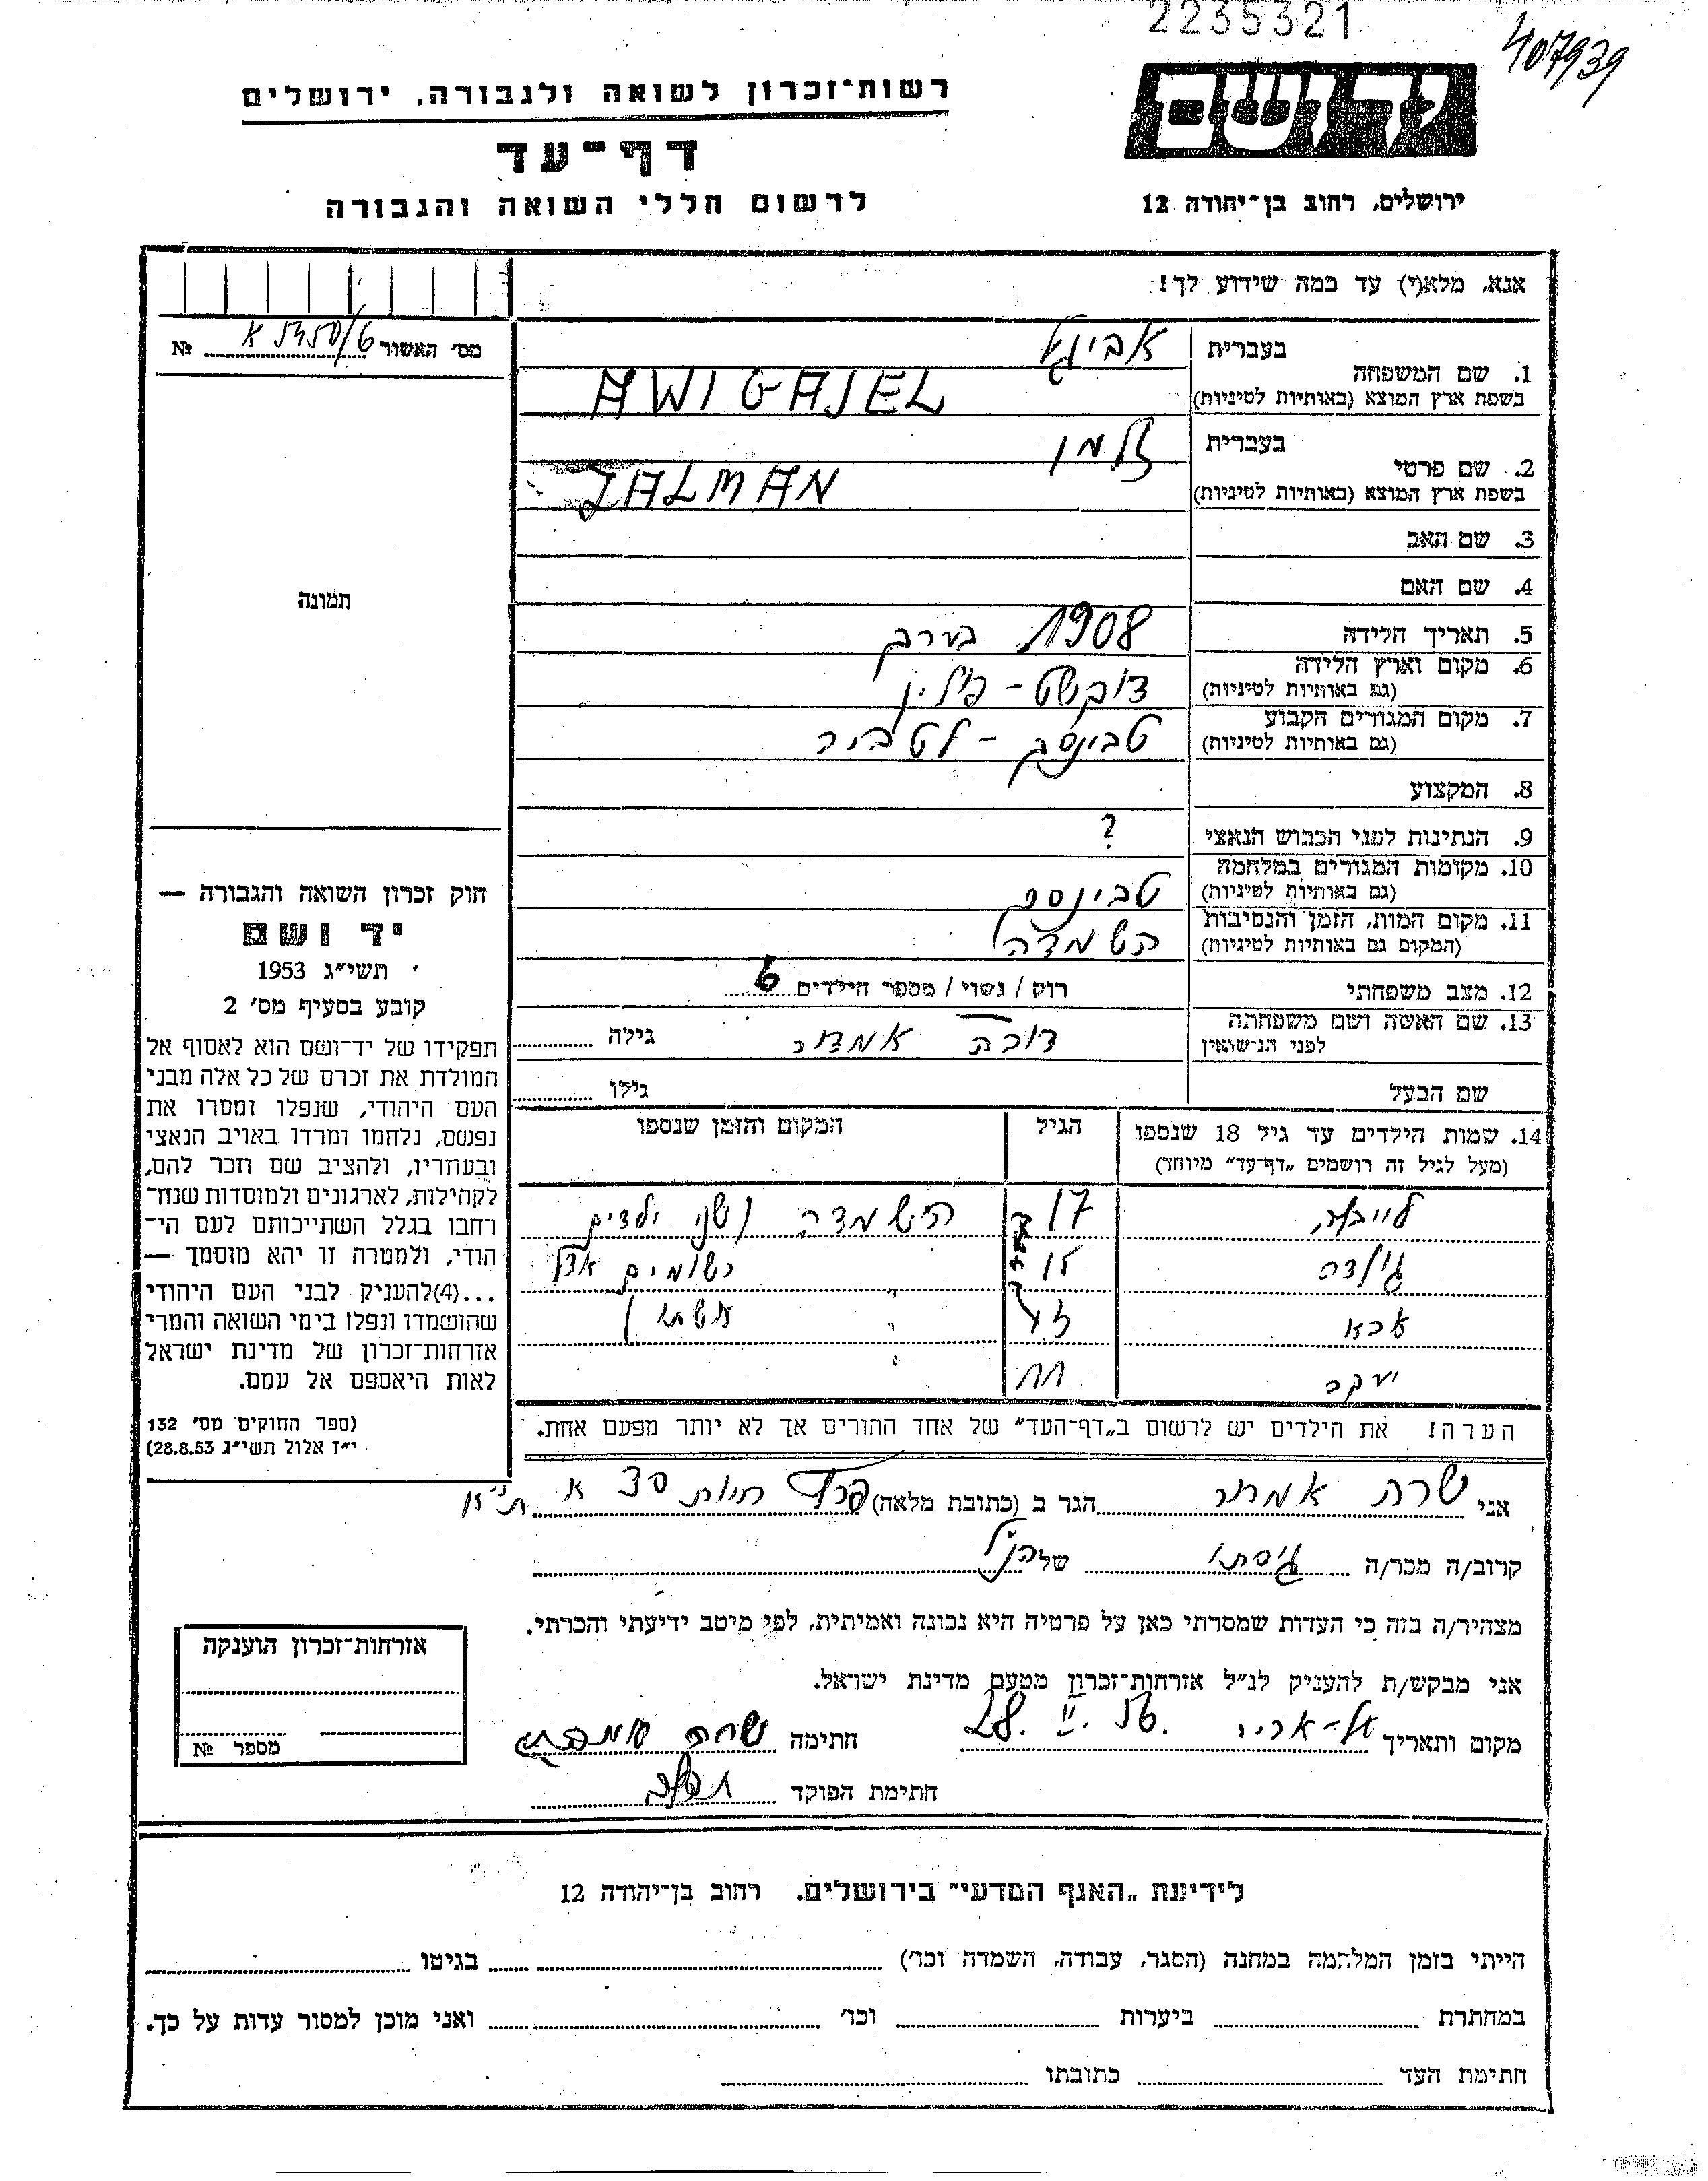 2235321
407939
יד ושם
ירושלים, רחוב בן־יהודה 12
רשות־זכרון לשואה ולגבורה, ירושלים
דף־עד
לרשום חללי השואה והגבורה
אנא, מלא(י) עד כמה שידוע לך!
מס׳ האשור № א 5450/6
תמונה
1. שם המשפחה
בעברית
בשפת ארץ המוצא (באותיות לטיניות) AWIGAJEL
2. שם פרטי
בעברית זלמן
בשפת ארץ המוצא (באותיות לטיניות) ZALMAN
3. שם האב
4. שם האם
5. תאריך הלידה 1908 בערך
6. מקום וארץ הלידה
(גם באותיות לטיניות) פולין
7. מקום המגורים הקבוע
(גם באותיות לטיניות) טבינסק - לטביה
8. המקצוע
9. הנתינות לפני הכבוש הנאצי ?
10. מקומות המגורים במלחמה
(גם באותיות לטיניות) טבינסק
11. מקום המות, הזמן והנסיבות
(המקום גם באותיות לטיניות) השמדה
12. מצב משפחתי רווק / נשוי / מספר הילדים 6
13. שם האשה ושם משפחתה
לפני הנישואין דובה גילה
שם הבעל גילו
14. שמות הילדים עד גיל 18 שנספו
(מעל לגיל זה רושמים „דף־עד” מיוחד)
הגיל
המקום והזמן שנספו
17 השמדה ושני ילדים
15 רשומים אצל
אשתו
יעקב
הערה! את הילדים יש לרשום ב„דף־העד” של אחד ההורים אך לא יותר מפעם אחת.
חוק זכרון השואה והגבורה —
יד ושם
תשי״ג 1953
קובע בסעיף מס׳ 2
תפקידו של יד־ושם הוא לאסוף אל
המולדת את זכרם של כל אלה מבני
העם היהודי, שנפלו ומסרו את
נפשם, נלחמו ומרדו באויב הנאצי
ובעוזריו, ולהציב שם וזכר להם,
לקהילות, לארגונים ולמוסדות שנח־
רבו בגלל השתייכותם לעם הי־
הודי, ולמטרה זו יהא מוסמך —
...(4)להעניק לבני העם היהודי
שהושמדו ונפלו בימי השואה והמרי
אזרחות־זכרון של מדינת ישראל
לאות היאספם אל עמם.
(ספר החוקים מס׳ 132
י״ז אלול תשי״ג 28.8.53)
אני שרה הגר ב (כתובת מלאה) 30 א ת״א
קרוב/ה מכר/ה גיסתו של הנ״ל
מצהיר/ה בזה כי העדות שמסרתי כאן על פרטיה היא נכונה ואמיתית, לפי מיטב ידיעתי והכרתי.
אני מבקש/ת להעניק לנ״ל אזרחות־זכרון מטעם מדינת ישראל.
מקום ותאריך תל-אביב 28. II. 56. חתימה שרה
חתימת הפוקד
אזרחות־זכרון הוענקה
מספר №
לידיעת „האגף המדעי” בירושלים. רחוב בן־יהודה 12
הייתי בזמן המלחמה במחנה (הסגר, עבודה, השמדה וכו׳) בגיטו
במחתרת ביערות וכו׳ ואני מוכן למסור עדות על כך.
חתימת העד כתובתו